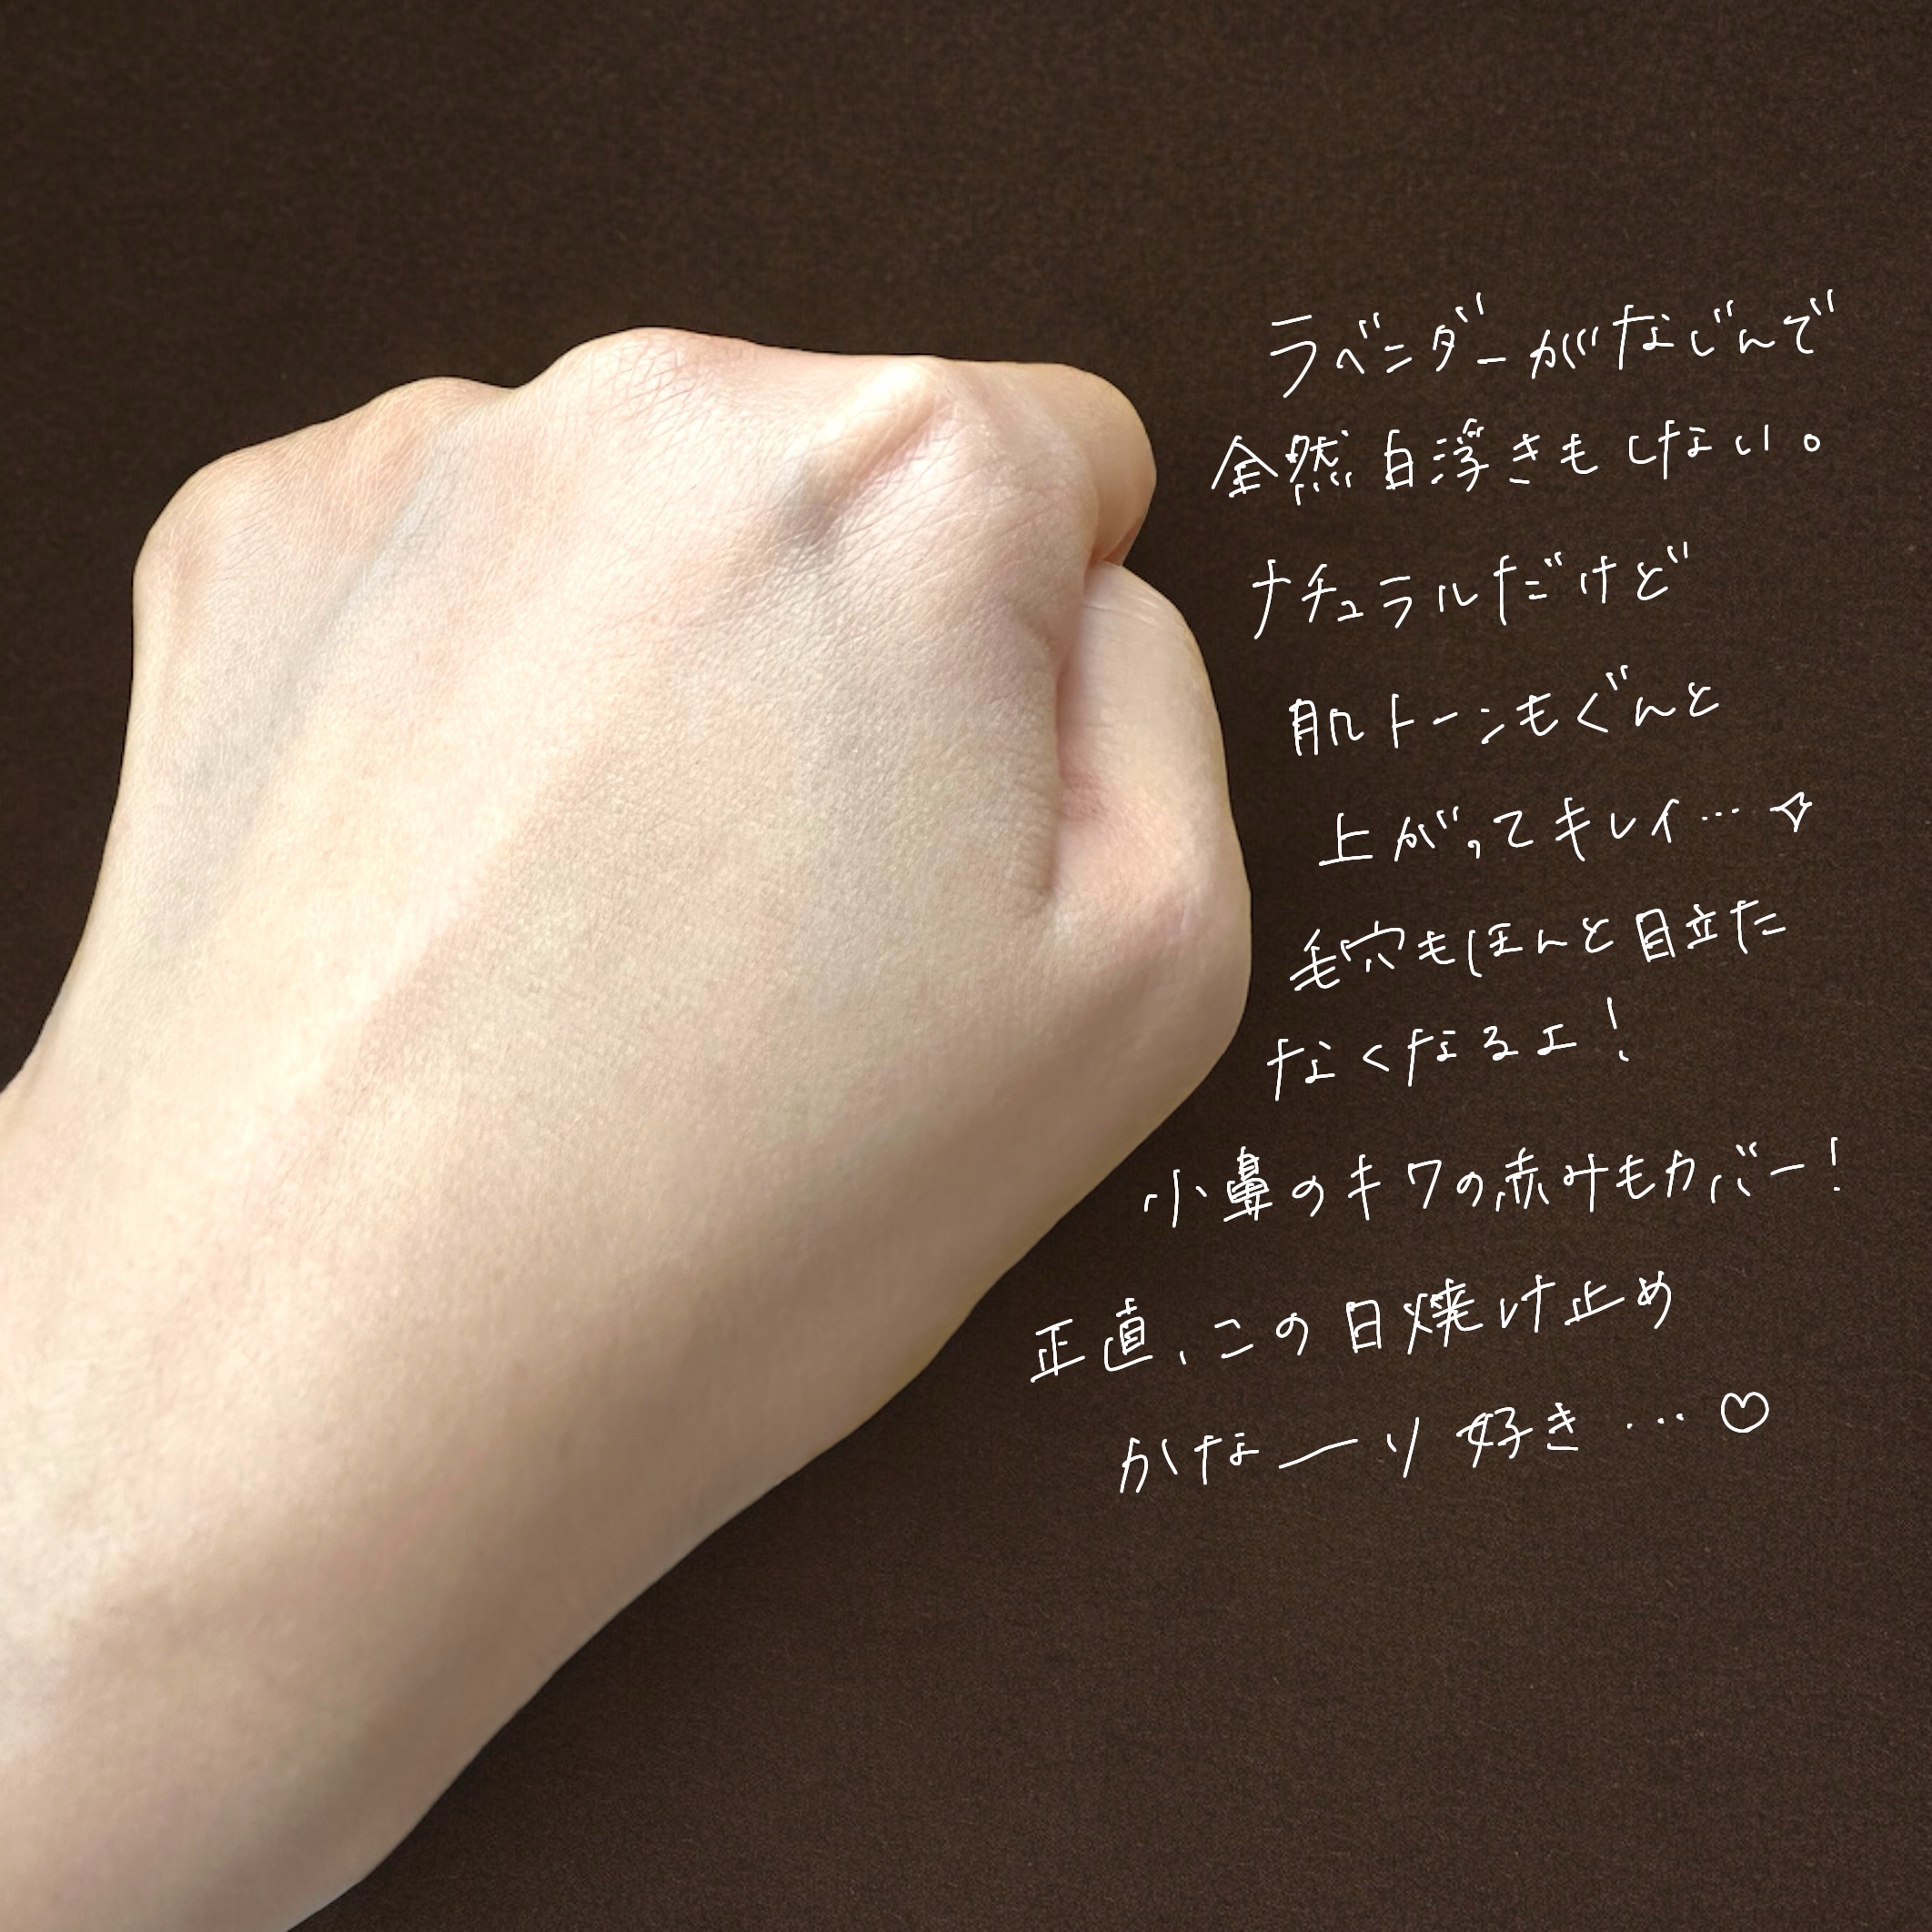 ラベンダーがなじんで
全然白浮きもしない。
ナチュラルだけど
肌トーンもぐんと
上がってキレイ…✧
毛穴もほんと目立た
なくなるェ!
小鼻のキワの赤みもカバー!
正直、この日焼け止め
かな―り好き…♡